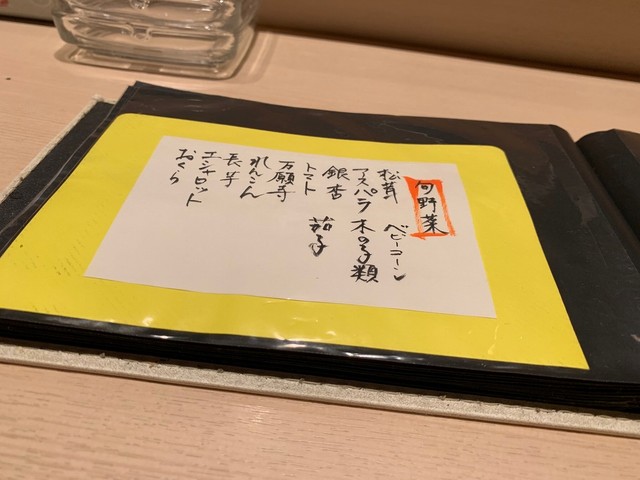 旬野菜
松茸 ベビーコーン
アスパラ 木の子類
銀杏
トマト 茄子
万願寺
れんこん
長芋
エシャロット
おくら